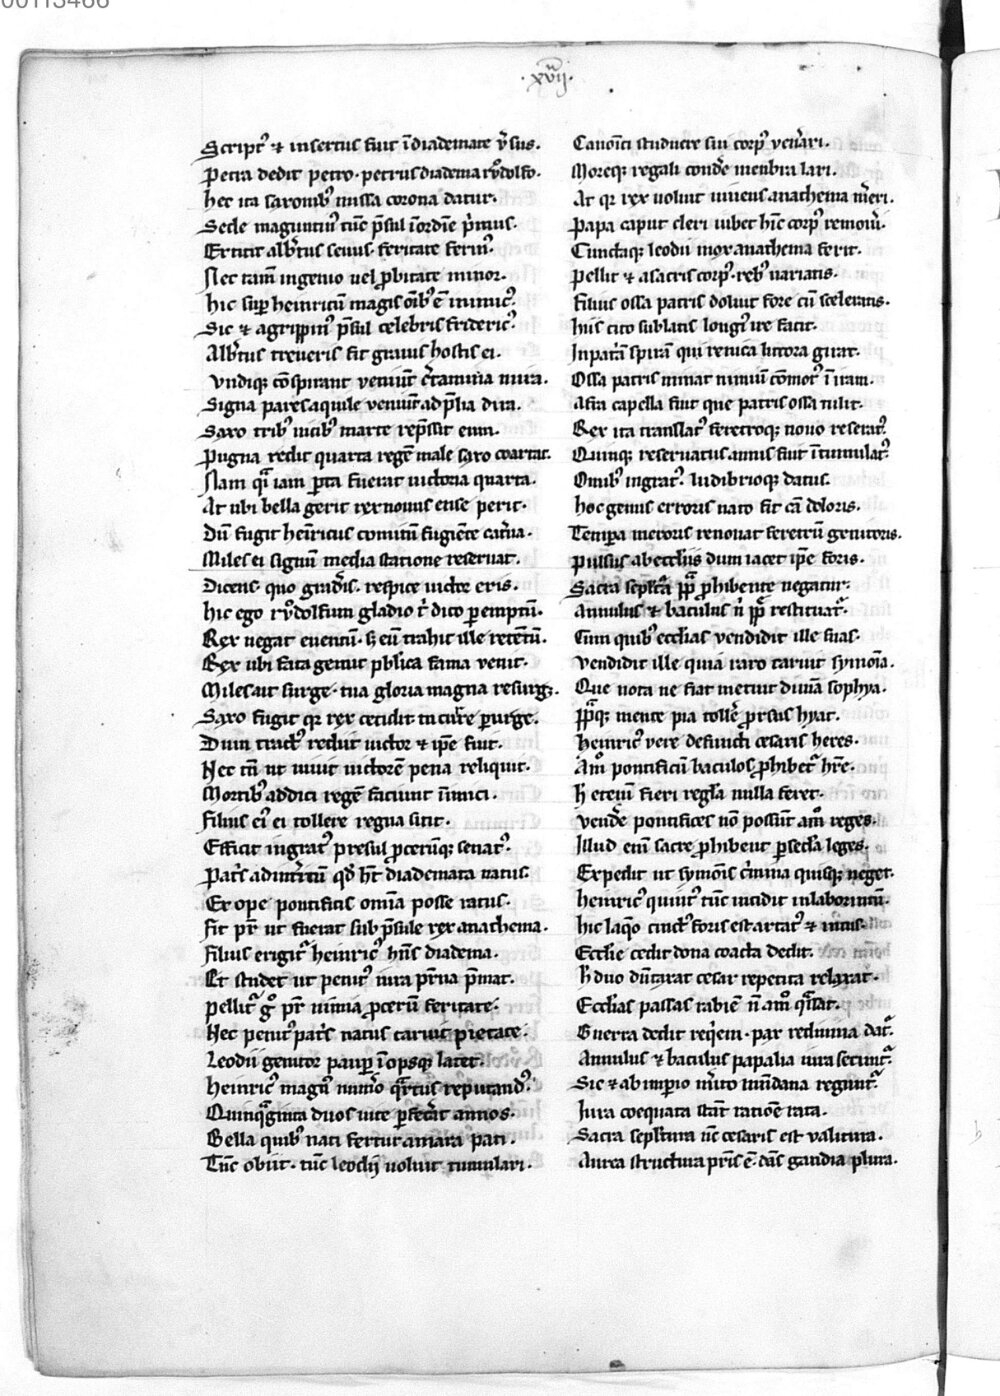 00113466
·xvij·
Script᷒ ⁊ insertus fuit ī diademate v̄sus.
Petra dedit petro· petrus diadema rvͦdolfo·
Hec ita saxonib᷒ missa corona datur·
Sede maguntin᷒ tūc p̄sul ī ordīe p̄mus·
Extitit alb̄tus seuus· feritate ferin᷒·
Nec tam̄ ingenio uel ꝓbitate minor·
Hic sup̲ heinricū magis oīb᷒ ē inimic᷒·
Sic ⁊ agrippin᷒ p̄sul celebris frideric᷒·
Alb̄tus treueris fit grauis hostis ei·
Vndiqꝫ cōspirant veniūt c̄tamina mira·
Signa pares aquile veniūt ad p̄lia dira·
Saxo trib᷒ uicib᷒ marte rep̄ssit eum·
Pugna redit quarta regē male saxo coartat·
Nam qͣ iam ꝑta fuerat uictoria quarta·
At ubi bella gerit rex nouus ense perit·
Dū fugit heinricus comitū fugiēte cat̄ua·
Miles ei signum media statione reseruat·
Dicens· quo grad̄is· respice uictor eris·
Hic ego rvͦdolfum gladio t̄ dico ꝑemptū·
Rex negat euentū· sꝫ eū trahit ille retētū·
Rex ubi fata gemit publica fama venit·
Miles ait surge· tua gloria magna resurgꝫ·
Saxo fugit qꝛ rex cecidit tu cur̄e ꝑurge·
Dum tract᷒ rediit uictor ⁊ ip̄e fuit·
Nec tn̄ ut uiuit uictorē pena reliquit·
Mortib᷒ addici regē faciunt inimici·
Filius ei᷒ ei tollere regna sitit·
Efficit ingrat᷒ presul ꝓcerūqꝫ senat᷒·
Pat̄s ad int̄itū qd̄ h̄t diademata natus·
Ex ope pontificis omīa posse ratus·
Fit pr̄ ut fuerat sub p̄sule rex anathema·
Filius erigit᷑ heinric᷒ hn̄s diadema·
Et studet ut penit᷒ iura pr̄na p̄mat·
Pellit᷑ gͦ pr̄ nimia ꝓcerū feritate·
Hec penit᷒ pat̄s natus caruit pietate·
Leodii genitor paup̲ īopsqꝫ latet·
Heinric᷒ magn᷒ nūero qͣrtus reputand᷒·
Quinqͣginta duos uite ꝑfec̄at annos·
Bella quib᷒ nati fertur amara pati·
Tūc obiit· tūc leodij uoluit tumulari·
Canoīci studuere sui corp᷒ ven̄ari·
Moreqꝫ regali cond̄e menbra lari·
At qꝛ rex uoluit uiuens anathema m̄eri·
Papa caput cleri iubet hīc corp᷒ remou̅i·
Cunctaqꝫ leodii mox anathema ferit·
Pellit ⁊ a sacris corp᷒· reb᷒ uariatis·
Filius ossa patris doluit fore cū sceleratis·
Hiis cito sublatis long᷒ ire facit·
In patͣm spirā qui retica littora girat·
Ossa patris mirat nimiū cōmot᷒ ī iram·
Afra capella fuit que patris ossa tulit·
Rex ita translat᷒ feretroqꝫ nouo reserat᷒·
Quinqꝫ reseruatus annis fuit ī tumulat᷒·
Omib᷒ ingrat᷒· ludibrioqꝫ datus·
Hoc genus erroris nato fit cā doloris·
Tempa meroris renouat feretrū genitoris·
Pulsus ab ecclīis dum iacet ip̄e foris·
Sacra sepltͣa ppͣ ꝓhibente negatur·
Annulus ⁊ baculus n̄ ppͣ restituat᷑·
Cum quib᷒ ecclias vendidit ille suas·
Vendidit ille quia raro caruit symōia·
Que nota ne fiat metuit diuina sophya·
Ppͣqꝫ mente pia toll̄e ꝓrsus hyat·
Heinric᷒ vere defuncti cesaris heres·
Amͦ pontificū baculos ꝓhibet᷑ hr̄e·
Sꝫ etenī fieri regl̄a nulla feret·
Vend̄e pontifices nō possūt amͦ reges·
Illud enī sacre ꝓhibent ꝑ secl̄a leges·
Expedit ut symōis c̄mina quisqꝫ neget·
Heinric᷒ quint᷒ tūc incidit in laborintū·
Hic laq̄o cinct᷒ foris est artat᷒ ⁊ intus·
Ecclīe cedit dona coacta dedit·
Sꝫ duo dūtaxat cesar repetita relaxat·
Ecclias passas rabiē n̄ amͦ qͣssat·
Guerra dedit reqiem· par rediuiua dat᷑·
Annulus ⁊ baculus papalia iura secunt᷑·
Sic ⁊ ab imperio m̄ito mūdana regunt᷑·
Iura coequata stāt ratiōe rata·
Sacra sepltura nc̄ cesaris est valitura·
Aurea structura pr̄is ē· dās gaudia plura·